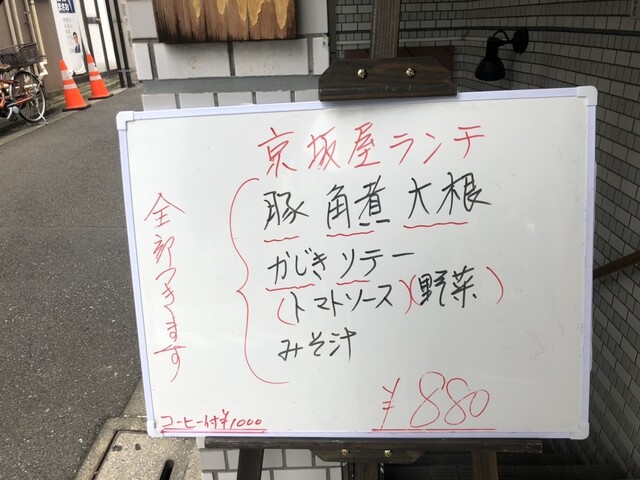 京坂屋ランチ
全部つきます
豚角煮大根
かじきソテー
(トマトソース)(野菜)
みそ汁
コーヒー付¥1000
¥880